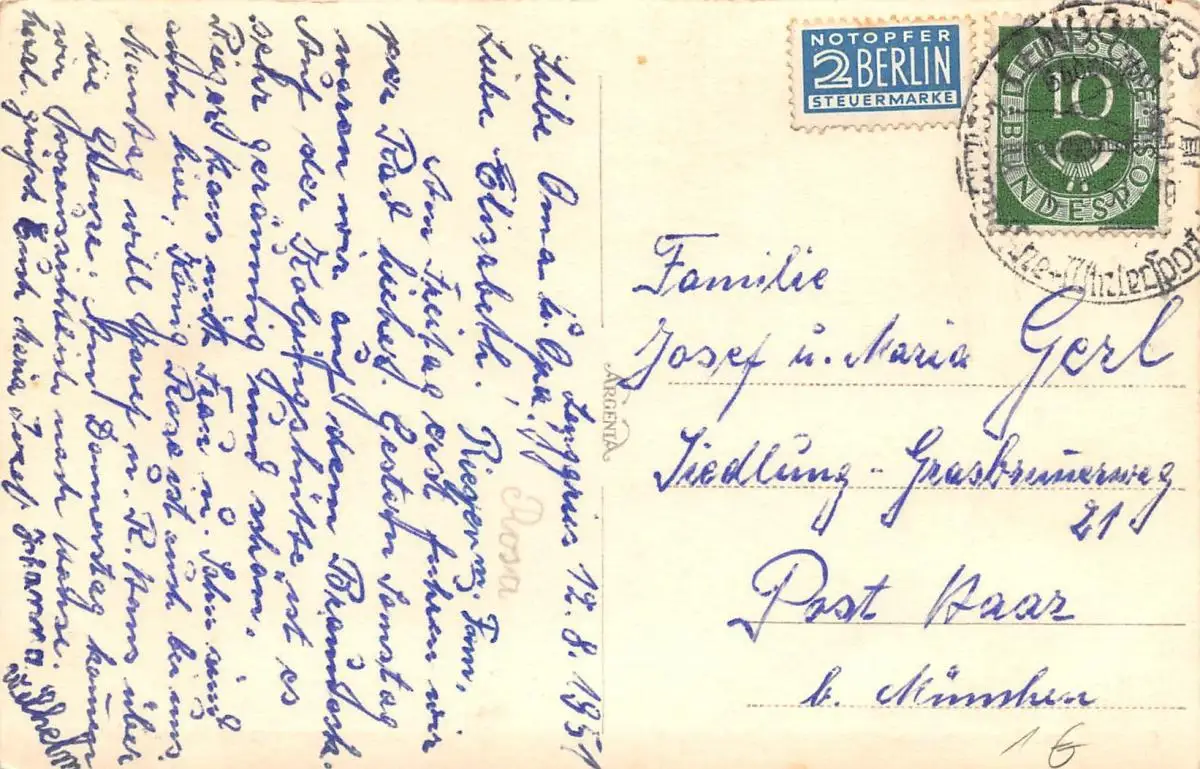 Lenggries 12.8.1951
Liebe Oma u. Opa,
Liebe Elisabeth, Rieger u. Fam.
Am Freitag erst fuhren wir
per Rad hieher. Gestern Samstag
waren wir auf dem Brauneck.
Auf der Kolpingshütte ist es
sehr geräumig und schön.
Rieger Hans mith Frau u. Sohn sind
auch hier, König Rosa ist auch bei uns
Montag will Josef u. R. Hans über
die Grenze. Am Donnerstag kommen
wir voraussichtlich nach Hause.
herzl. grüßt Euch Maria Josef Johanna u. Wilhelm
Rosa
ARGENTA
NOTOPFER
2 BERLIN
STEUERMARKE
DEUTSCHE
BUNDESPOST
10
LENGGRIES
Wintersport
Familie
Josef u. Maria Gerl
Siedlung - Grasbrunnerweg
21
Post Haar
b. München
1 €